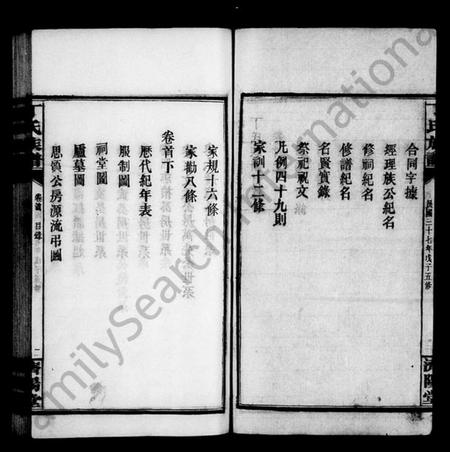 合同字據
經理族公紀名
修祠紀名
修譜紀名
名賢實錄
祭祀祝文
凡例四十九則
家訓十二條
民國三十七年戊子五修
濟陽堂
家規十六條
家勸八條
卷首下
歷代紀年表
服制圖
祠堂圖
廬墓圖
思領公房源流弔圖
氏族譜
卷首 目錄
濟陽堂
FamilySearch International